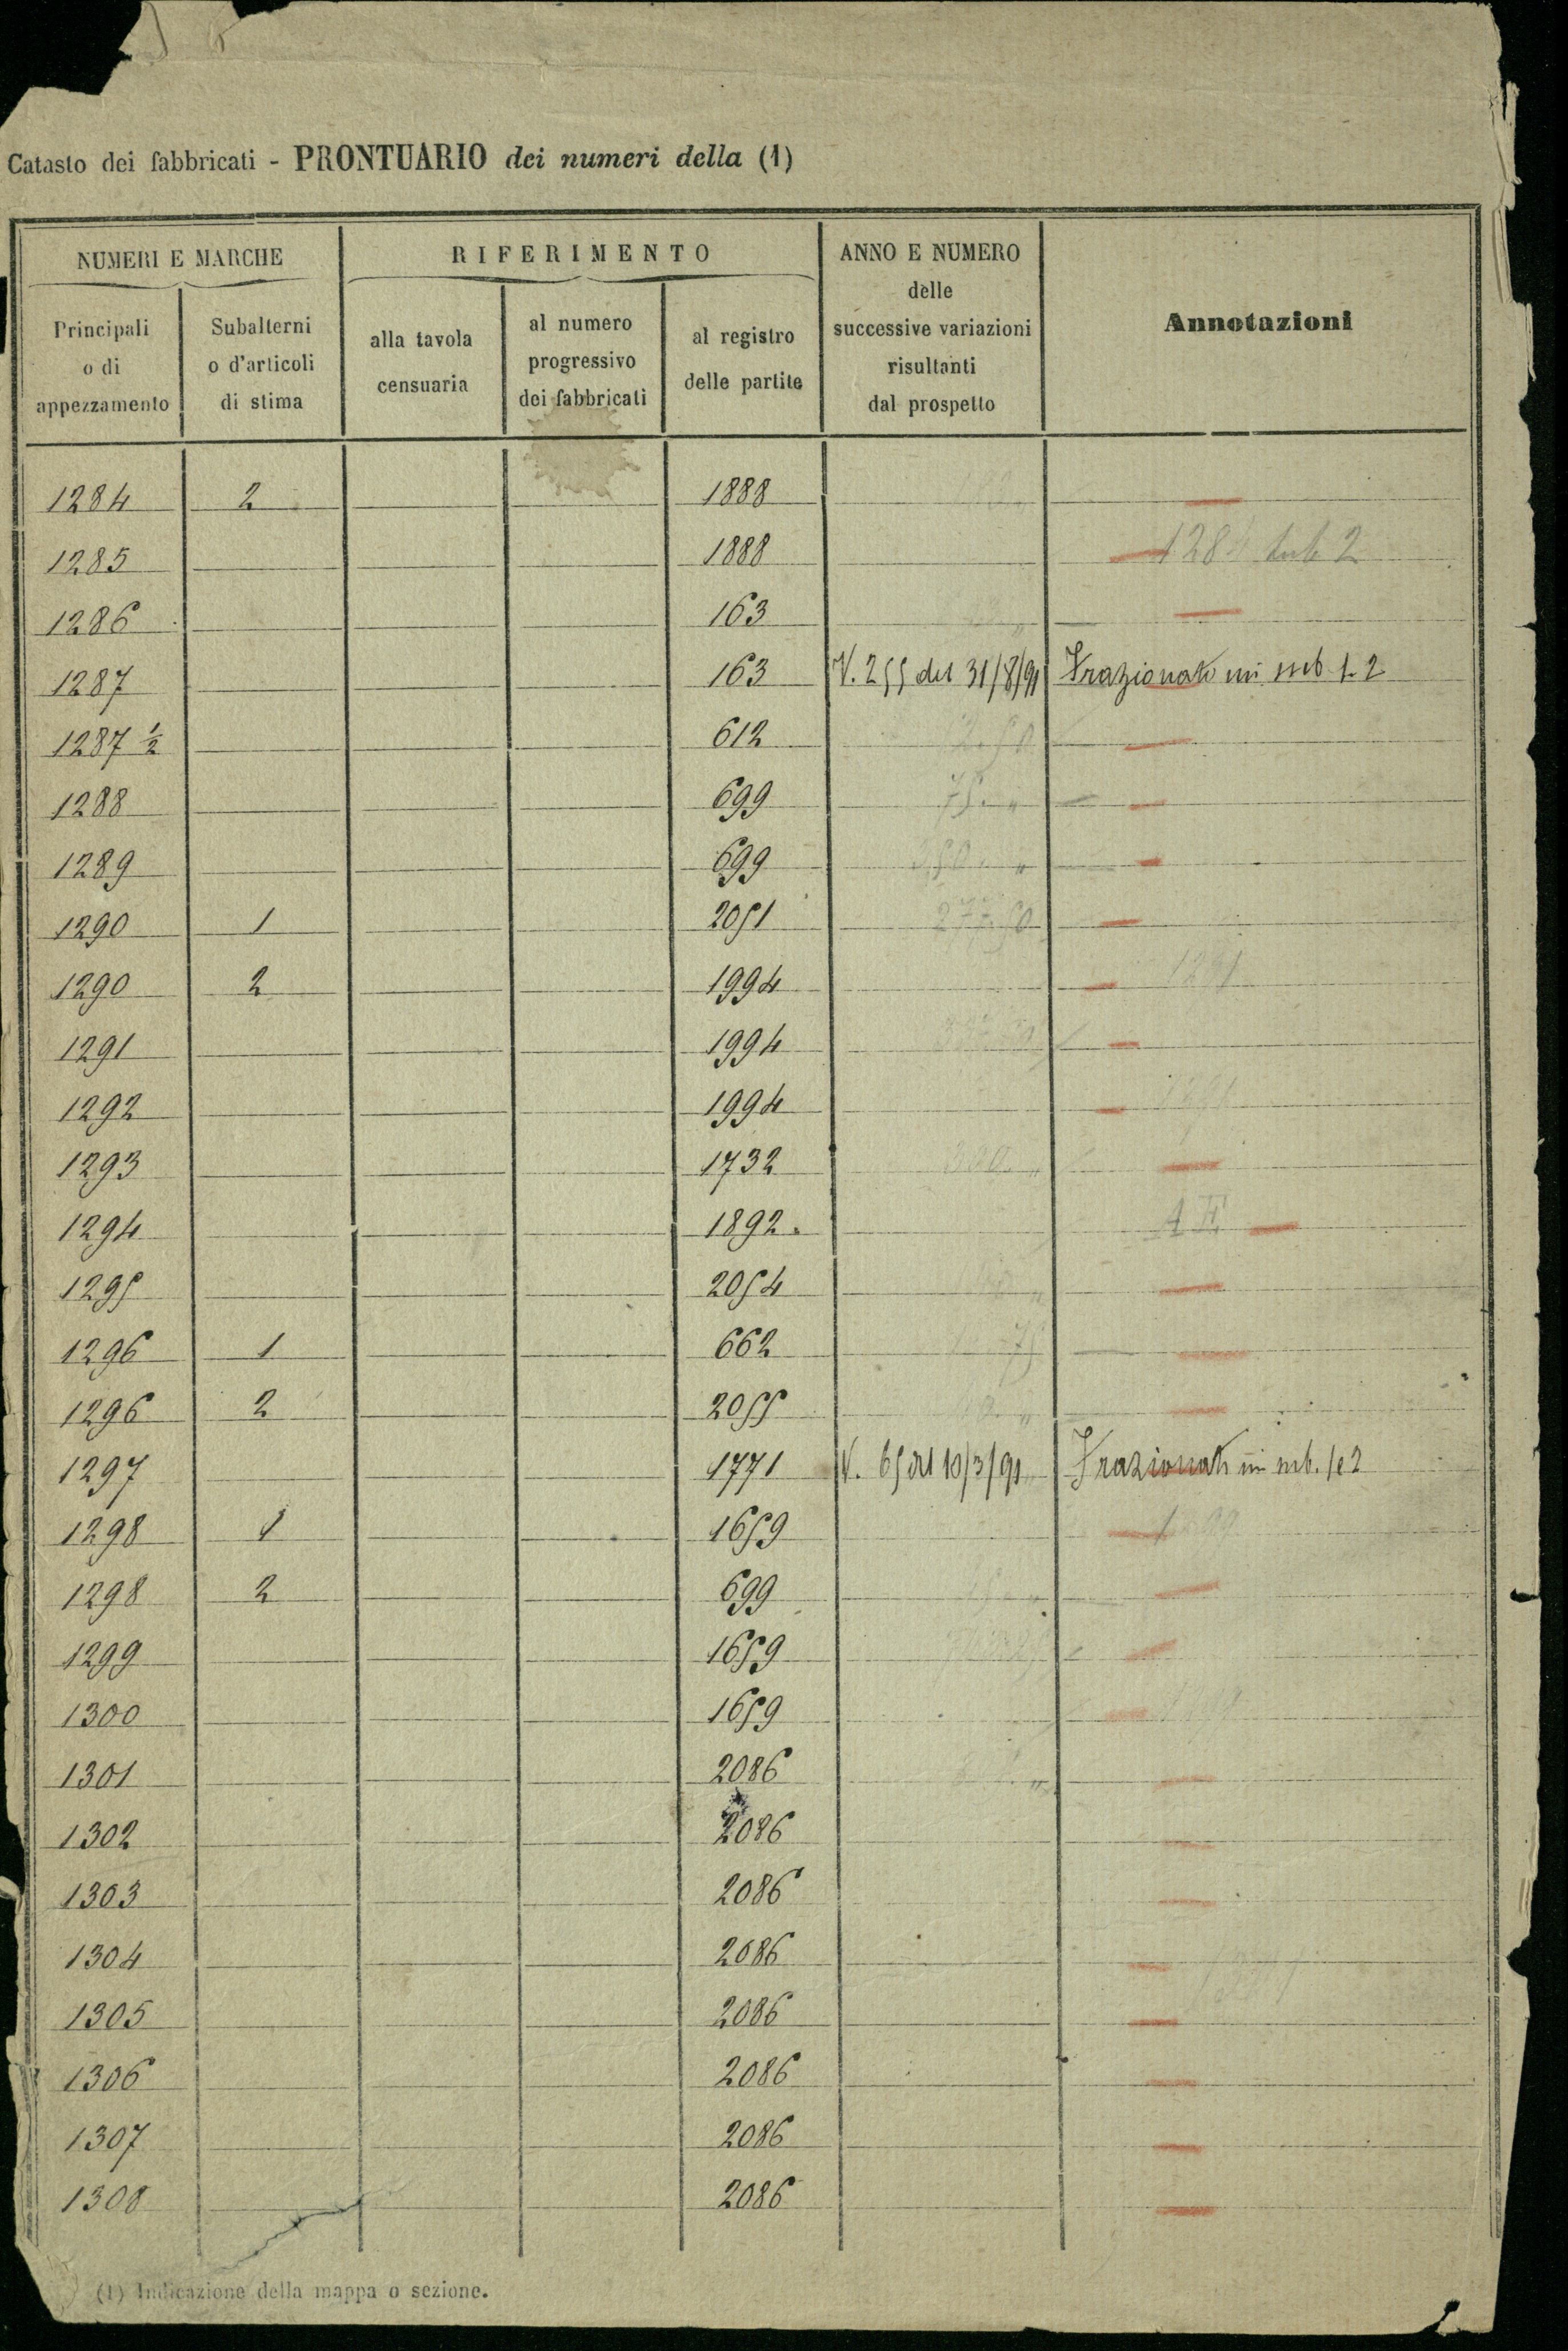 Catasto dei fabbricati - PRONTUARIO dei numeri della (1)
NUMERI E MARCHE
RIFERIMENTO
ANNO E NUMERO
delle
successive variazioni
risultanti
dal prospetto
Annotazioni
Principali
o di
appezzamento
Subalterni
o d'articoli
di stima
alla tavola
censuaria
al numero
progressivo
dei fabbricati
al registro
delle partite
1284 2 1888
1285 1888 sub 2
1286 163
1287 163 V. 255 del 31/8/91 Frazionato in sub 1. 2
1287 ½ 612
1288 699 75. "
1289 699
1290 1 2051 277.50
1290 2 1994 1291
1291 1994
1292 1994
1293 1732 300. "
1294 1892.
1295 2054
1296 1 662 75
1296 2 2055
1297 1771 V. 65 del 10/3/91 Frazionato in sub. 1 e 2
1298 1 1659
1298 2 699
1299 1659
1300 1659
1301 2086
1302 2086
1303 2086
1304 2086
1305 2086
1306 2086
1307 2086
1308 2086
(1) Indicazione della mappa o sezione.